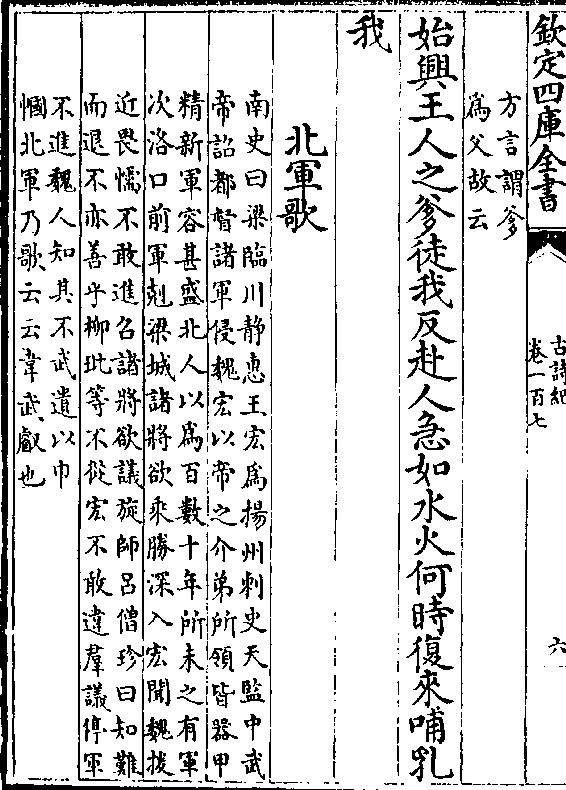 欽定四庫全書
古詩紀
卷一百七
六
方言謂爹
為父故云
始興王人之爹徒我反赴人急如水火何時復來哺乳
我
北軍歌
南史曰梁臨川靜惠王宏為揚州刺史天監中武
帝詔都督諸軍侵魏宏以帝之介弟所領皆器甲
精新軍容甚盛北人以為百數十年所未之有軍
次洛口前軍剋梁城諸將欲乘勝深入宏聞魏援
近畏懦不敢進召諸將欲議旋師呂僧珍曰知難
而退不亦善乎柳玭等不從宏不敢違羣議停軍
不進魏人知其不武遺以巾
幗北軍乃歌云云韋武叡也